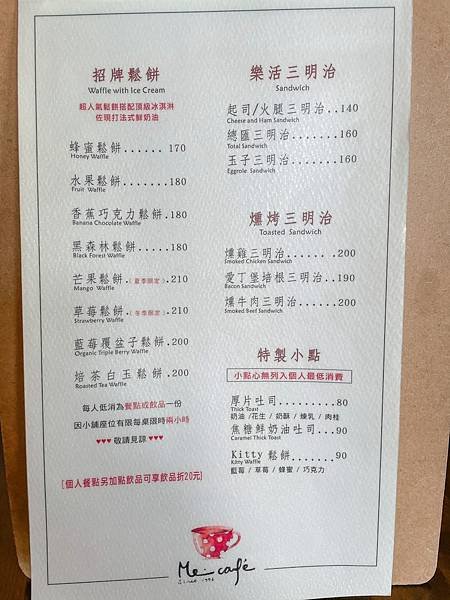 招牌鬆餅
Waffle with Ice Cream
超人氣鬆餅搭配頂級冰淇淋
佐現打法式鮮奶油
蜂蜜鬆餅...... 170
Honey Waffle
水果鬆餅.......180
Fruit Waffle
香蕉巧克力鬆餅.180
Banana Chocolate Waffle
黑森林鬆餅.....180
Black Forest Waffle
芒果鬆餅.(夏季限定).210
Mango Waffle
草莓鬆餅.(冬季限定).210
Strawberry Waffle
藍莓覆盆子鬆餅.200
Organic Triple Berry Waffle
焙茶白玉鬆餅.200
Roasted Tea Waffle
每人低消為餐點或飲品一份
因小舖座位有限每桌限時兩小時
♥♥♥ 敬請見諒 ♥♥♥
[個人餐點另加點飲品可享飲品折20元]
樂活三明治
Sandwich
起司/火腿三明治..140
Cheese and Ham Sandwich
總匯三明治.......160
Total Sandwich
玉子三明治.......160
Eggrole Sandwich
燻烤三明治
Toasted Sandwich
燻雞三明治...... .200
Smoked Chicken Sandwich
愛丁堡培根三明治..190
Bacon Sandwich
燻牛肉三明治......200
Smoked Beef Sandwich
特製小點
小點心無列入個人最低消費
厚片吐司........80
Thick Toast
奶油/花生/奶酥/煉乳/肉桂
焦糖鮮奶油吐司...90
Caramel Thick Toast
Kitty鬆餅.......90
Kitty Waffle
藍莓/草莓/蜂蜜/巧克力
Me café
Since 1996